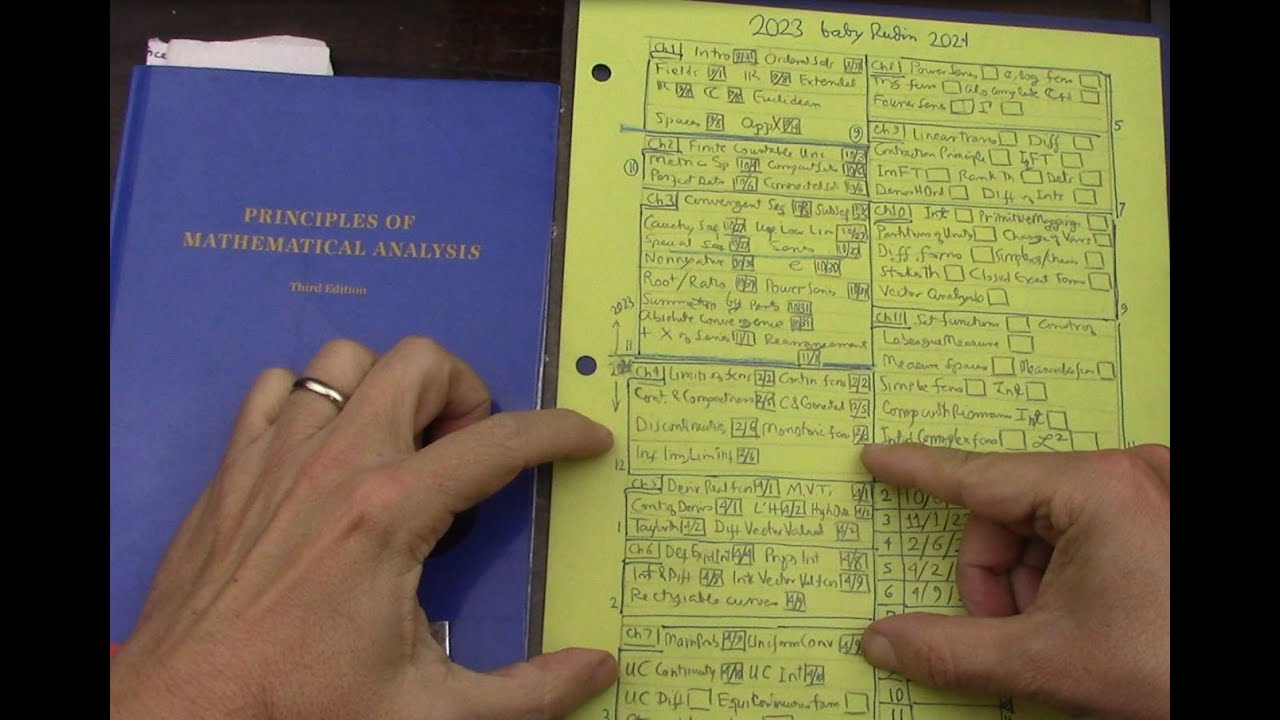 nce
PRINCIPLES OF
MATHEMATICAL ANALYSIS
Third Edition
2023 baby Rudin 2024
Ch1 Intro Ordered Sets
Fields 9/1 IR Extended
IR C Euclidean
Spaces 9/8 AppX 9
Ch2 Finite Countable Unc 10/3
10 Metric Sp 10/4 Compact Sets
Perfect Sets 10/6 Connected Set 10/6
Ch3 Convergent Seq Subseq
Cauchy Seq 10/27 Up Low Lim 10/27
Special Seq 10/27 Series 10/27
Nonnegative 10/30 e 10/30
Root/Ratio Power Series
Summation by Parts 10/31
2023 Absolute Convergence 10/31
11 + X of Series 11/1 Rearrangement
11/1
Ch4 Limits of fcns 2/2 Contin fcns 2/2
Cont. & Compactness 2/5 C & Connected 2/5
Discontinuities 2/9 Monotonic fcns
12 Inf Lim, Lim Inf 2/6
Ch5 Deriv Real fcn 4/1 M.V.T, 4/1
Cont of Derivs 4/1 L'H 4/2 High Der 4/2
1 Taylor th 4/2 Diff Vector Valued 4/2
Ch6 Def Exist Int 4/4 Props Int 4/8
Int & Diff 4/8 Int Vector Val fcn 4/9
2 Rectifiable curves 4/9
Ch7 Main Prob 4/9 Uniform Conv 4/9
UC Continuity 4/10 UC Int 4/10
UC Diff Equicontinuous fam
3
Ch8 Power Series e, log fcns
Trig fcns alg complete C
Fourier Series Γ
5
Ch9 Linear Trans Diff
Contraction Principle IFT
ImFT Rank Th Dets
Derivs H Ord Diff of Ints
7
Ch10 Int Primitive Mappings
Partitions of Unity Change of Vars
Diff. forms Simplex/Chains
Stokes Th Closed Exact Forms
Vector Analysis
9
Ch11 Set functions Constr of
Lebesgue Measure
Measure Spaces Measurable fcn
Simple fcns Int
Comp with Riemann Int
Int of Complex fcns ℒ2
2 10/
3 11/1/2
4 2/6/
5 4/2/
6 4/9/
10
11